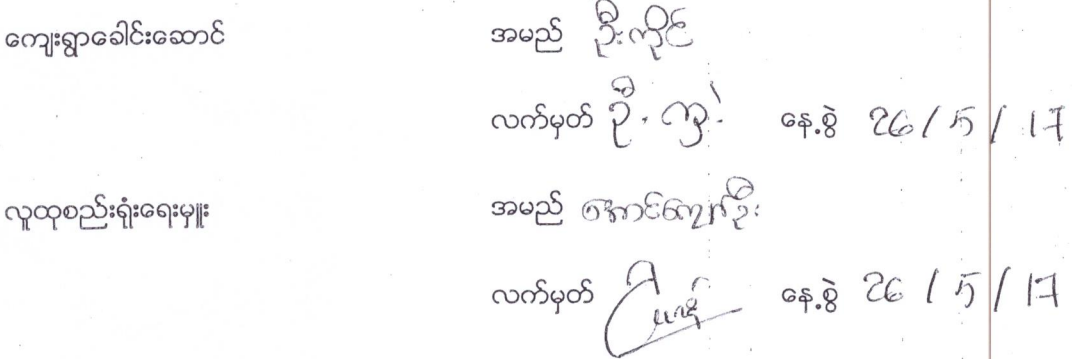 ကျေးရွာခေါင်းဆောင် အမည် ဦးကိုင်
လက်မှတ် နေ့စွဲ 26/5/17
လူထုစည်းရုံးရေးမှူး အမည် အောင်ကျော်ဦး
လက်မှတ် နေ့စွဲ 26/5/17